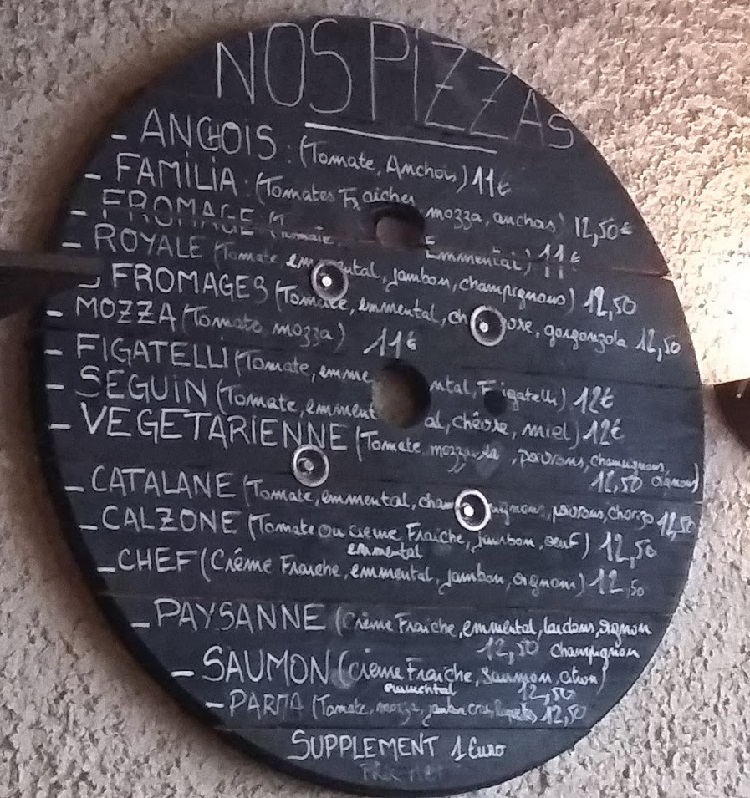 NOS PIZZAS
- ANCHOIS : (Tomate, Anchois) 11€
- FAMILIA : (Tomates Fraiches mozza, anchas) 12,50€
- FROMAGE (Tomate Emmental) 11€
- ROYALE (Tomate emmental, jambon, champignons) 12,50
FROMAGES (Tomate, emmental, chèvre, gorgonzola 12,50
- MOZZA (Tomate mozza) 11€
- FIGATELLI (Tomate, emmental, Figatelli) 12€
- SEGUIN (Tomate, emmental, chèvre, miel) 12€
- VEGETARIENNE (Tomate mozza, poivrons, champignons,
12,50 oignons)
- CATALANE (Tomate, emmental, champignons, poivrons, chorizo 12,50
- CALZONE (Tomate ou crème Fraîche, jambon, oeuf) 12,50
emmental
- CHEF (Crême Fraiche, emmental, jambon, oignons) 12,50
- PAYSANNE (Crème Fraîche, emmental, lardons, oignon
12,50 Champignon
- SAUMON (Crème Fraîche, saumon, citron)
emmental 12,50
- PARMA (Tomate, mozza, jambon cru, 12,50
SUPPLEMENT 1 Euro